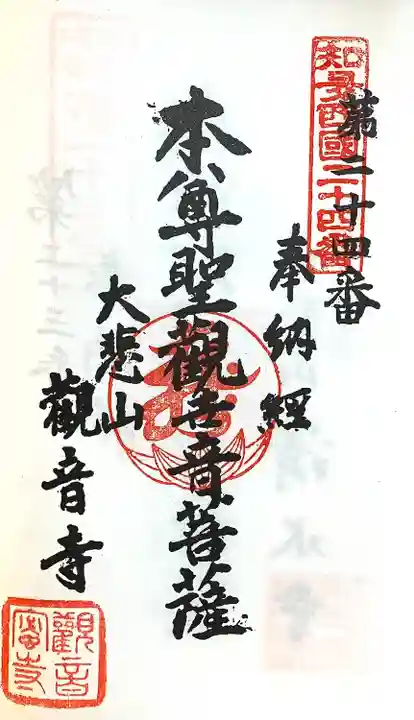 知多西國二十四番
第二十四番
奉納経
本尊聖觀世音菩薩
大悲山
觀音寺
觀音寺